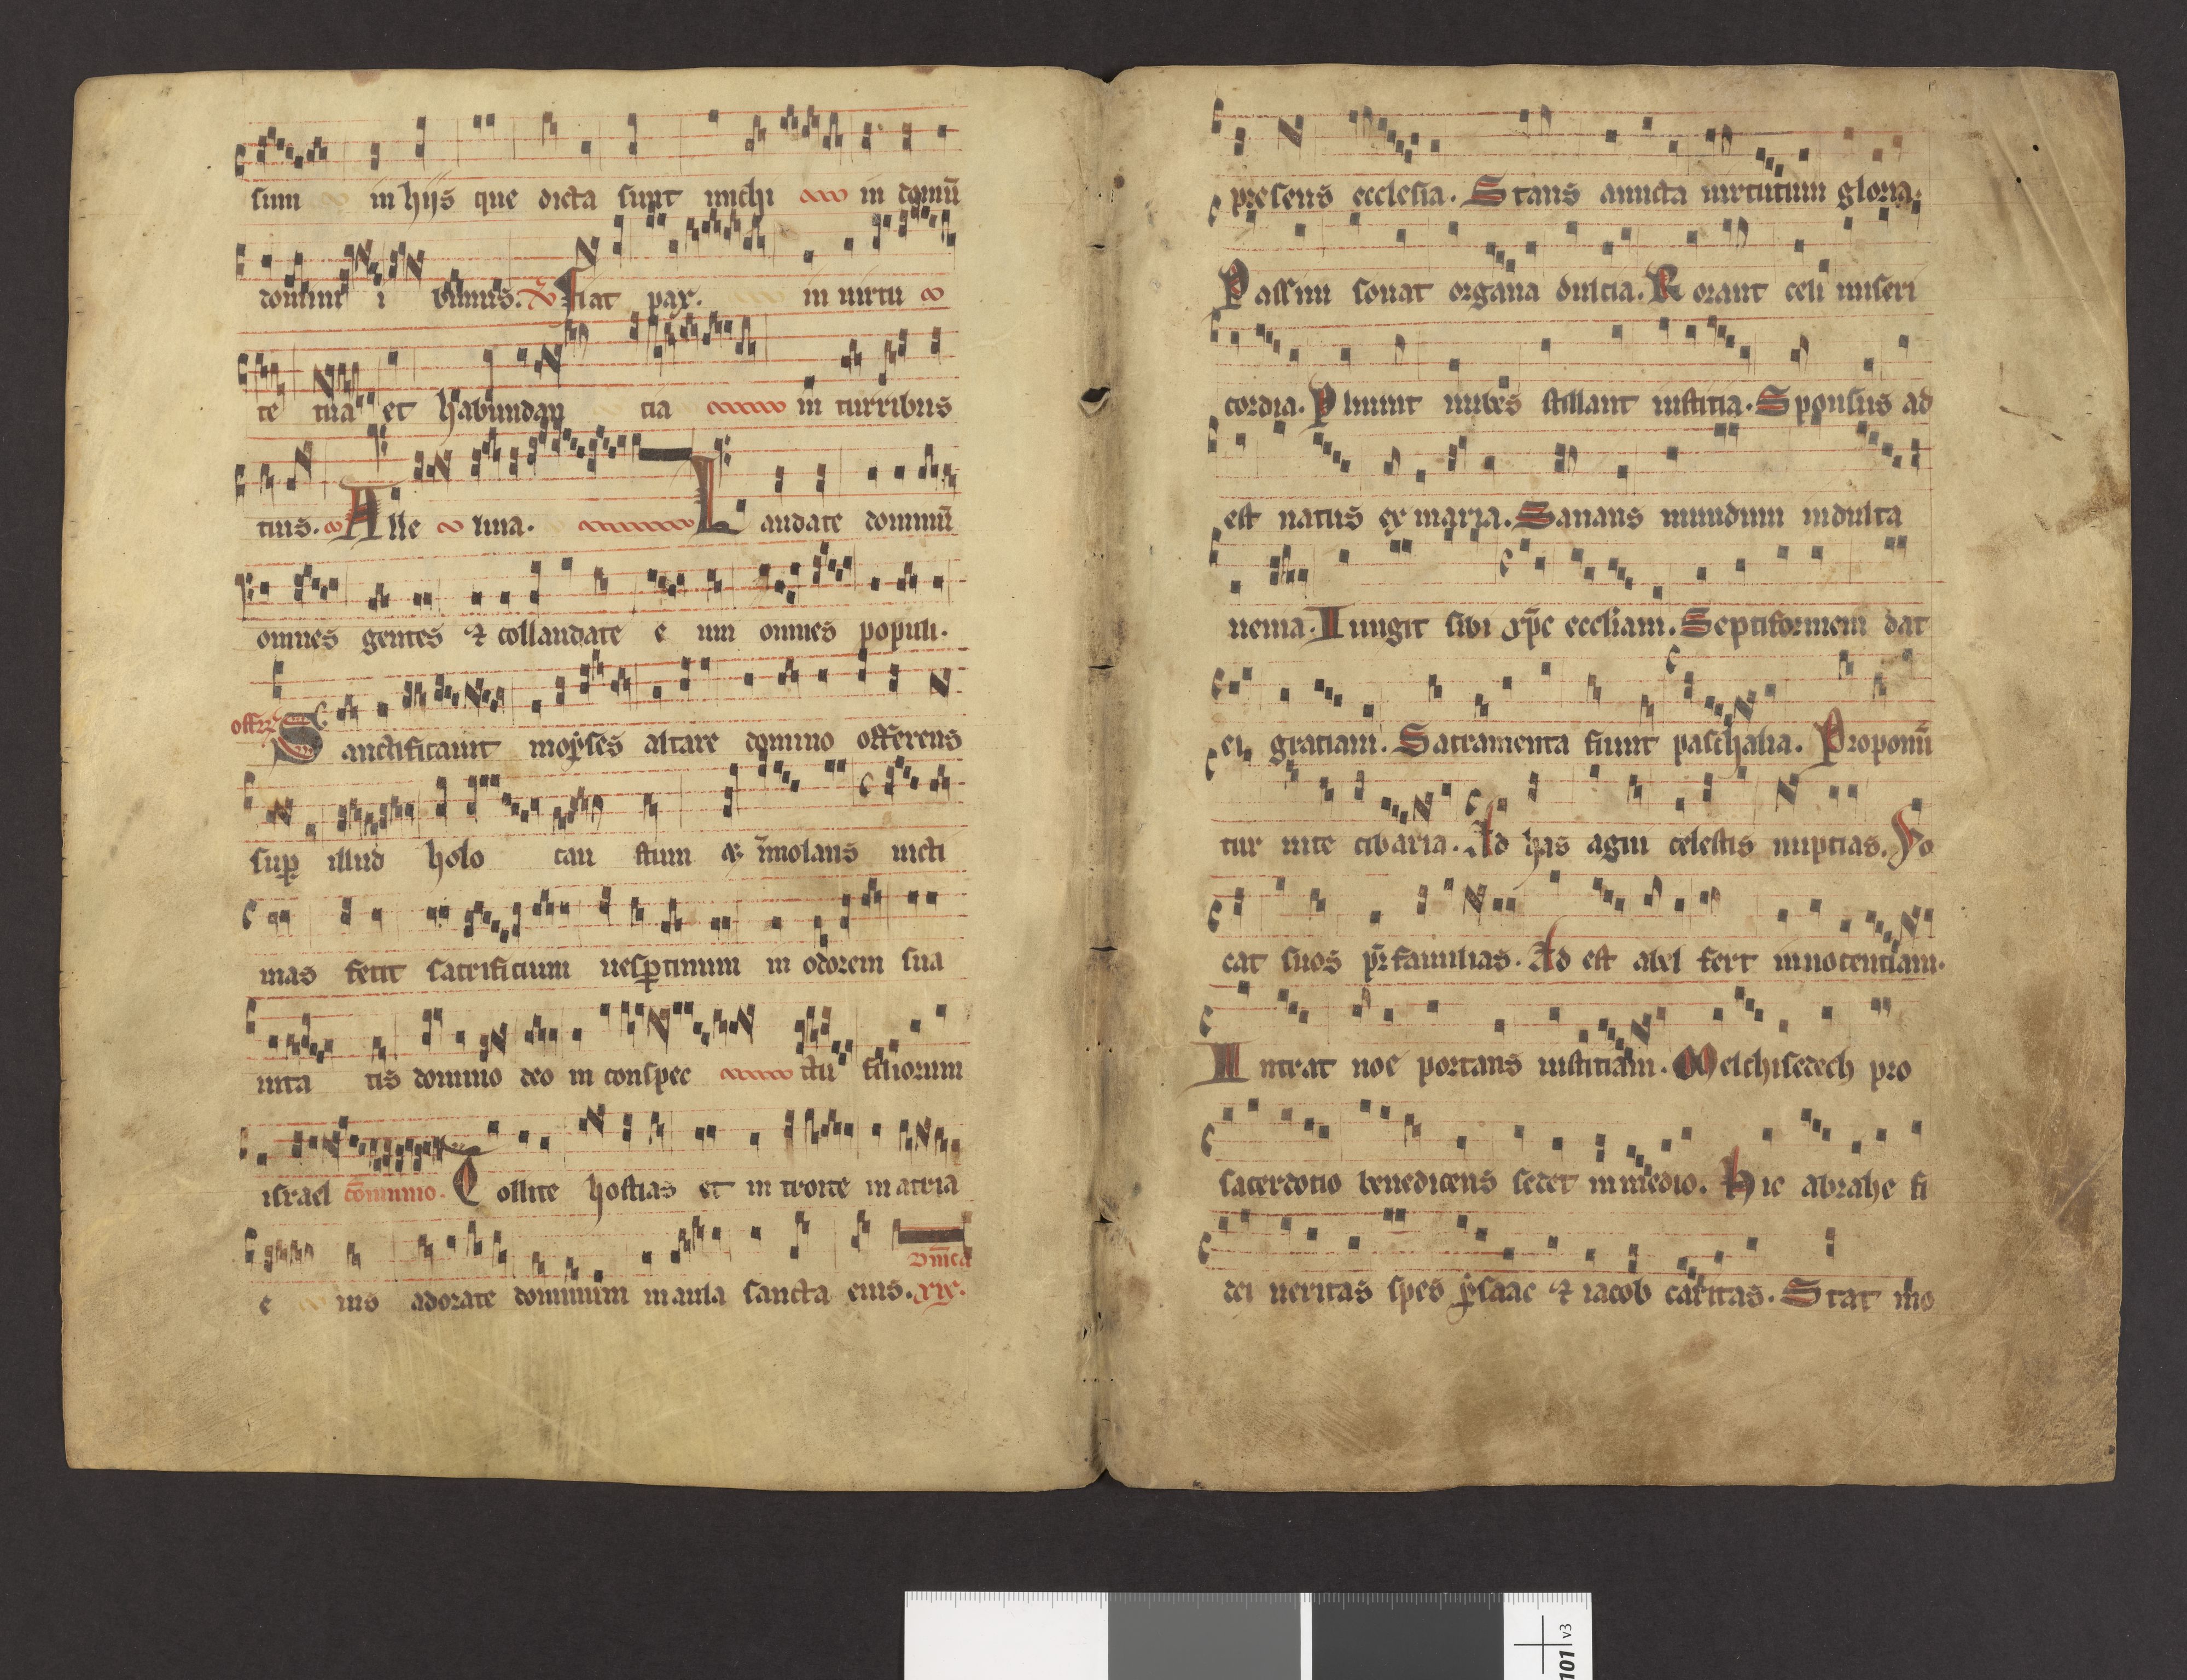 sum in hijs que dicta sunt michi in domū
domini i bimus. ℣ Fiat pax. in uirtu
te tua et habundan tia in turribus
tius. Alle luia. Laudate dominū
omnes gentes ⁊ collaudate e um omnes populi.
offerꝫ Sanctificauit moẏses altare domino offerens
suꝑ illud holo cau stum ⁊ īmolans uicti
mas fecit sacrificium uesꝑtinum in odorem sua
uita tis domino deo in conspec ctu filiorum
israel cōmunio. Tollite hostias et in troite in atria
e ius adorate dominum in aula sancta eius. dn̄ica xix.
presens ecclesia. Stans amicta uirtutum gloria.
Passim sonat organa dulcia. Rorant celi miseri
cordia. Pluunt nubes stillant iustitia. Sponsus ad
est natus ex maria. Sanans mundum indulta
uenia. Iungit sibi xp̄c eccliam. Septiformem dat
ei gratiam. Sacramenta fiunt paschalia. Proponū
tur uite cibaria. Ad has agni celestis nuptias. Uo
cat suos pr̄familias. Ad est abel fert innocentiam.
Intrat noe portans iustitiam. Melchisedech pro
sacerdotio benedicens sedet in medio. Hic abrahe fi
dei ueritas spes ẏsaac ⁊ iacob caritas. Stat mo
101 v3